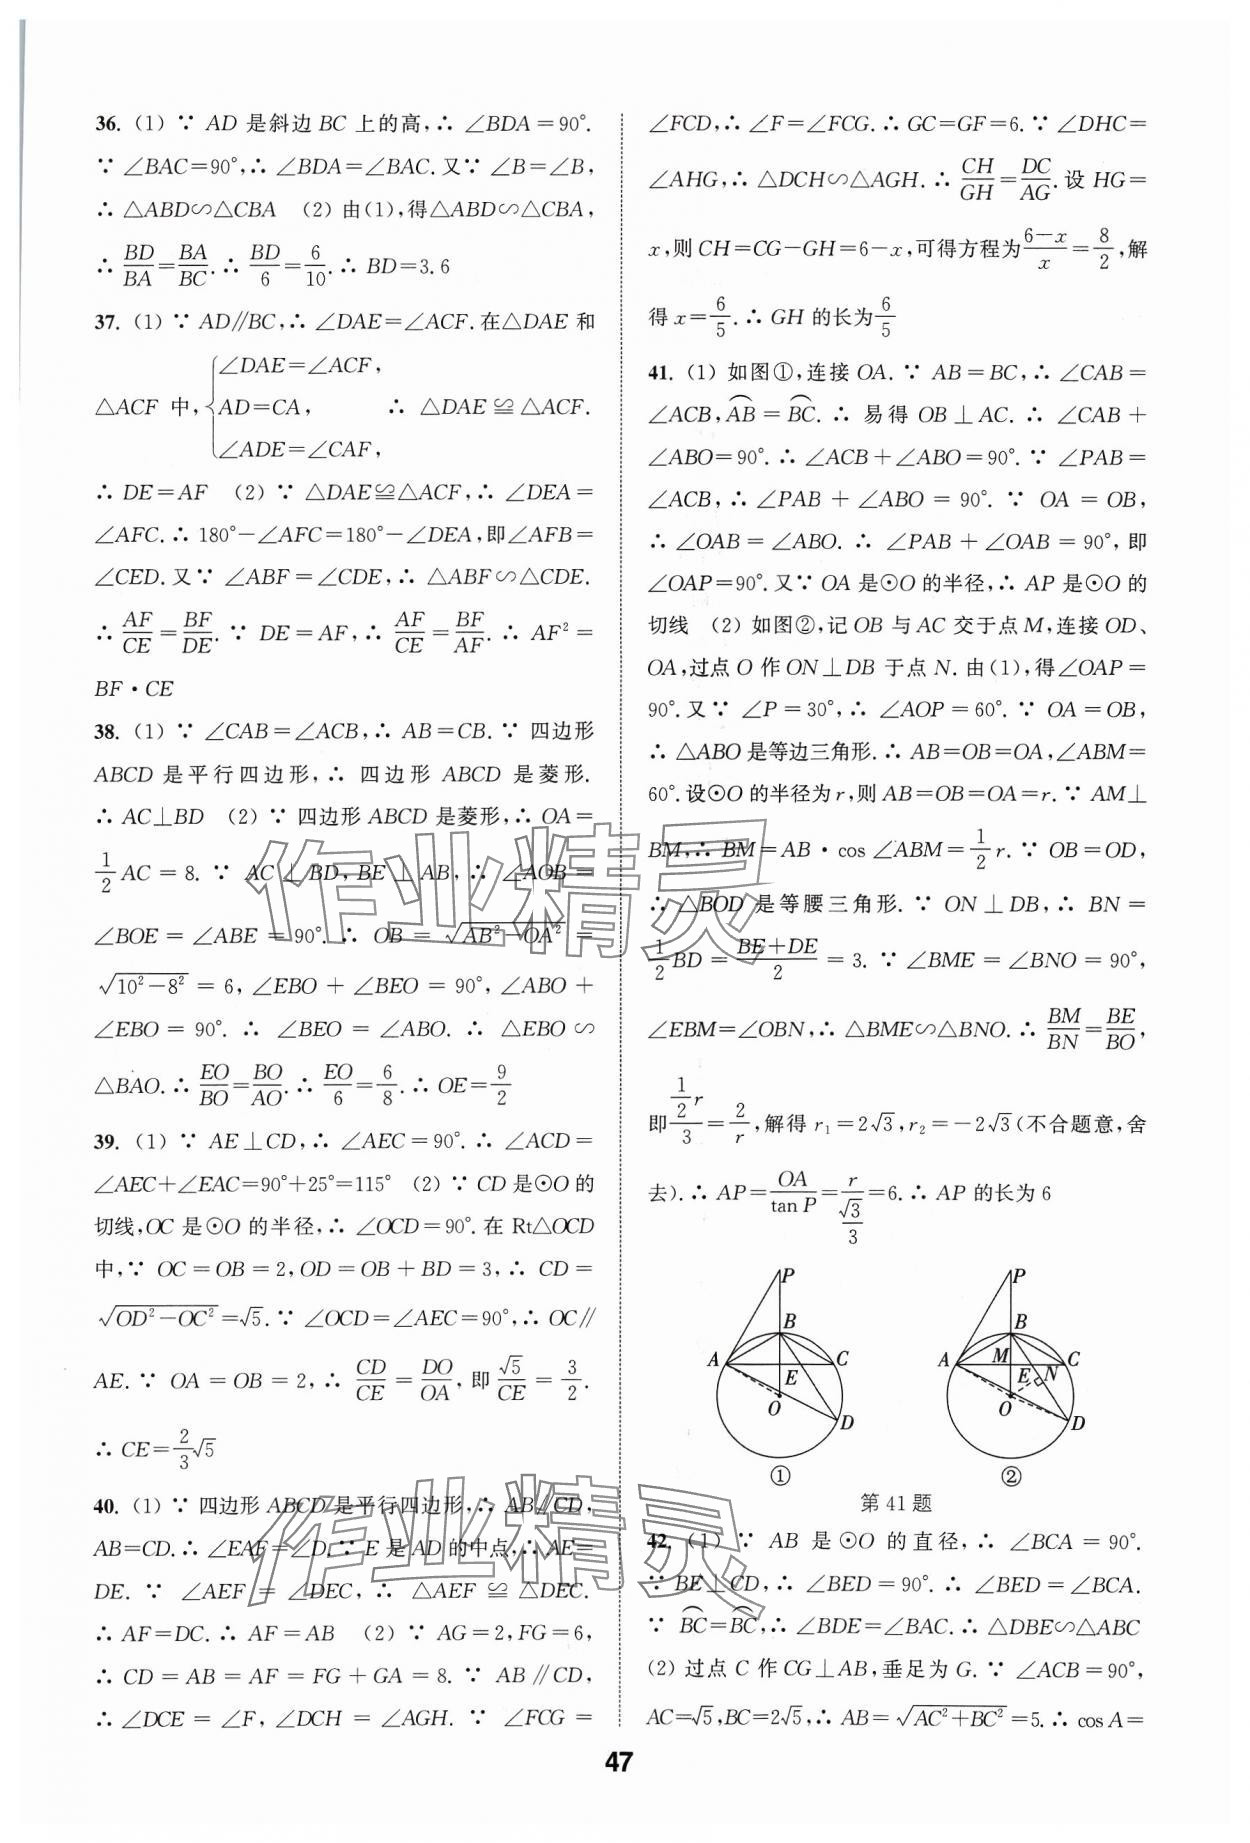 36. (1) ∵ AD 是斜边 BC 上的高,∴ ∠BDA=90°.
∵ ∠BAC=90°,∴ ∠BDA=∠BAC. 又∵ ∠B=∠B,
∴ △ABD∽△CBA (2) 由(1),得△ABD∽△CBA,
∴ BD/BA=BA/BC. ∴ BD/6=6/10. ∴ BD=3.6
37. (1) ∵ AD∥BC,∴ ∠DAE=∠ACF. 在△DAE 和
△ACF 中,{∠DAE=∠ACF, AD=CA, ∠ADE=∠CAF, ∴ △DAE≌△ACF.
∴ DE=AF (2) ∵ △DAE≌△ACF,∴ ∠DEA=
∠AFC. ∴ 180°-∠AFC=180°-∠DEA,即∠AFB=
∠CED. 又∵ ∠ABF=∠CDE,∴ △ABF∽△CDE.
∴ AF/CE=BF/DE. ∵ DE=AF,∴ AF/CE=BF/AF. ∴ AF²=
BF·CE
38. (1) ∵ ∠CAB=∠ACB,∴ AB=CB. ∵ 四边形
ABCD 是平行四边形,∴ 四边形 ABCD 是菱形.
∴ AC⊥BD (2) ∵ 四边形 ABCD 是菱形,∴ OA=
1/2 AC=8. ∵ AC⊥BD,BE⊥AB,∴ ∠AOB=
∠BOE=∠ABE=90°. ∴ OB=√(AB²-OA²)=
√(10²-8²)=6,∠EBO+∠BEO=90°,∠ABO+
∠EBO=90°. ∴ ∠BEO=∠ABO. ∴ △EBO∽
△BAO. ∴ EO/BO=BO/AO. ∴ EO/6=6/8. ∴ OE=9/2
39. (1) ∵ AE⊥CD,∴ ∠AEC=90°. ∴ ∠ACD=
∠AEC+∠EAC=90°+25°=115° (2) ∵ CD 是⊙O 的
切线,OC 是⊙O 的半径,∴ ∠OCD=90°. 在 Rt△OCD
中,∵ OC=OB=2,OD=OB+BD=3,∴ CD=
√(OD²-OC²)=√5. ∵ ∠OCD=∠AEC=90°,∴ OC∥
AE. ∵ OA=OB=2,∴ CD/CE=DO/OA,即 √5/CE=3/2.
∴ CE=2/3√5
40. (1) ∵ 四边形 ABCD 是平行四边形,∴ AB∥CD,
AB=CD. ∴ ∠EAF=∠D. ∵ E 是 AD 的中点,∴ AE=
DE. ∵ ∠AEF=∠DEC,∴ △AEF≌△DEC.
∴ AF=DC. ∴ AF=AB (2) ∵ AG=2,FG=6,
∴ CD=AB=AF=FG+GA=8. ∵ AB∥CD,
∴ ∠DCE=∠F,∠DCH=∠AGH. ∵ ∠FCG=
∠FCD,∴ ∠F=∠FCG. ∴ GC=GF=6. ∵ ∠DHC=
∠AHG,∴ △DCH∽△AGH. ∴ CH/GH=DC/AG. 设 HG=
x,则 CH=CG-GH=6-x,可得方程为(6-x)/x=8/2,解
得 x=6/5. ∴ GH 的长为6/5
41. (1) 如图①,连接 OA. ∵ AB=BC,∴ ∠CAB=
∠ACB,⌒AB=⌒BC. ∴ 易得 OB⊥AC. ∴ ∠CAB+
∠ABO=90°. ∴ ∠ACB+∠ABO=90°. ∵ ∠PAB=
∠ACB,∴ ∠PAB+∠ABO=90°. ∵ OA=OB,
∴ ∠OAB=∠ABO. ∴ ∠PAB+∠OAB=90°,即
∠OAP=90°. 又∵ OA 是⊙O 的半径,∴ AP 是⊙O 的
切线 (2) 如图②,记 OB 与 AC 交于点 M,连接 OD、
OA,过点 O 作 ON⊥DB 于点 N. 由(1),得∠OAP=
90°. 又∵ ∠P=30°,∴ ∠AOP=60°. ∵ OA=OB,
∴ △ABO 是等边三角形. ∴ AB=OB=OA,∠ABM=
60°. 设⊙O 的半径为 r,则 AB=OB=OA=r. ∵ AM⊥
BM,∴ BM=AB·cos ∠ABM=1/2 r. ∵ OB=OD,
∴ △BOD 是等腰三角形. ∵ ON⊥DB,∴ BN=
1/2 BD=(BE+DE)/2=3. ∵ ∠BME=∠BNO=90°,
∠EBM=∠OBN,∴ △BME∽△BNO. ∴ BM/BN=BE/BO,
即(1/2 r)/3=2/r,解得 r₁=2√3,r₂=-2√3(不合题意,舍
去). ∴ AP=OA/tan P=r/(√3/3)=6. ∴ AP 的长为 6
P
B
A
C
E
O
D
①
P
B
A
M
C
E
N
O
D
②
第 41 题
42. (1) ∵ AB 是⊙O 的直径,∴ ∠BCA=90°.
∵ BE⊥CD,∴ ∠BED=90°. ∴ ∠BED=∠BCA.
∵ ⌒BC=⌒BC,∴ ∠BDE=∠BAC. ∴ △DBE∽△ABC
(2) 过点 C 作 CG⊥AB,垂足为 G. ∵ ∠ACB=90°,
AC=√5,BC=2√5,∴ AB=√(AC²+BC²)=5. ∴ cos A=
47
作业精灵
作业精灵